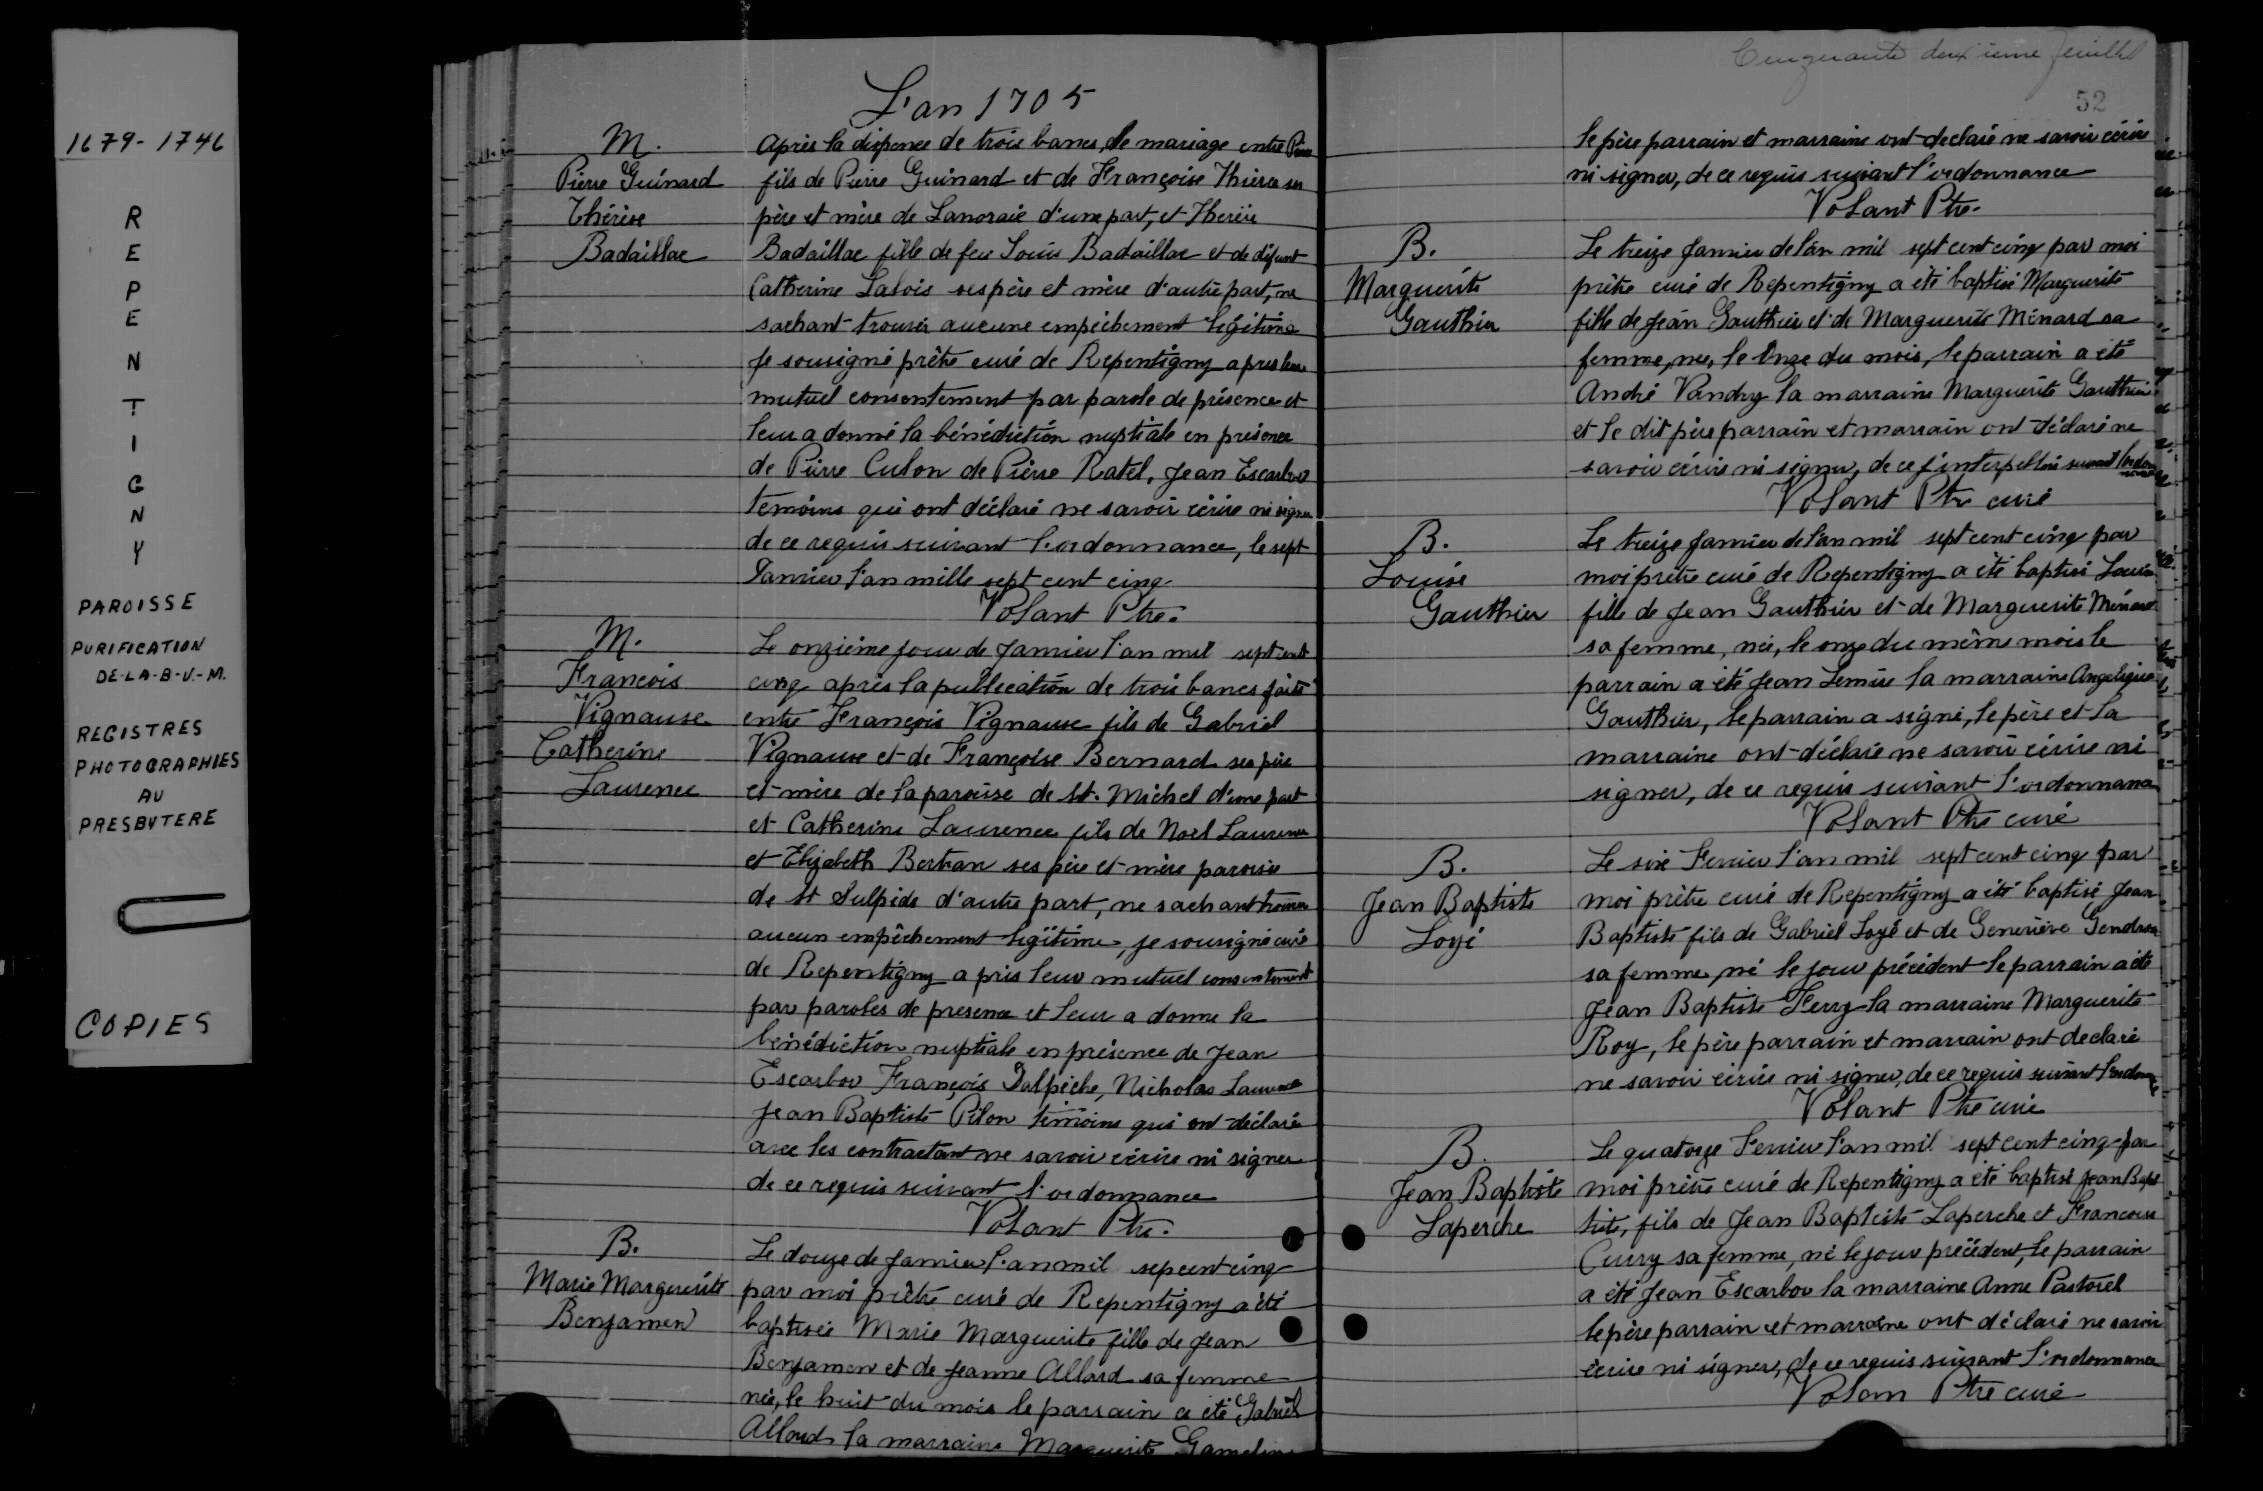 1679-1746
REPENTIGNY
PAROISSE
PURIFICATION
DE-LA-B-V.-M.
REGISTRES
PHOTOGRAPHIES
AU
PRESBYTERE
COPIES
L'an 1705
M.
Pierre Guinard
Thérèse
Badaillac
Après la dispence de trois bancs, de mariage entre Pierre
fils de Pierre Guinard et de Françoise Thierce ses
père et mère de Lanoraie d'une part, et Therèse
Badaillac fille de feu Louis Badaillac et de défunt
Catherine Lalois ses père et mère d'autre part, ne
sachant trouvér aucune empêchement légitime
Je sousigné prêtre curé de Repentigny a pres leur
mutuel consentement par parole de présence et
leur a donné la bénédiction nuptiale en présence
de Pierre Culon de Pierre Ratel, Jean Escarbor
temoins qui ont déclaré ne savoir écrire ni signer
de ce requis suivant l'ordonnance, le sept
Janvier l'an mille sept cent cinq
Volant Ptre.
M.
Francois
Vignause
Catherine
Laurence
Le onzième jour de Janvier l'an mil sept cent
cinq après la publication de trois bancs faite
entre François Vignause fils de Gabriel
Vignause et de Françoise Bernard ses père
et mère de la paroise de St. Michel d'une part
et Catherine Laurence fils de Noel Laurence
et Elizabeth Bertran ses père et mère paroise
de St Sulpide d'autre part, ne sachant trouver
aucun empêchement legitime, je sousigné curé
de Repentigny a pris leur mutuel consentement
par paroles de presence et leur a donne la
bénédiction nuptiale en présence de Jean
Escarbor François Dalpéche, Nicholas Laurence
Jean Baptiste Pilon témoins qui ont déclaré
avec les contractant ne savoir écrire ni signer
de ce requis suivant l'ordonnance
Volant Ptre.
B.
Marie Marguerite
Benjamen
Le douze de Janvier l'an mil sepcent cinq
par moi prêtre curé de Repentigny a été
baptisée Marie Marguerite fille de Jean
Benjamen et de Jeanne Allard sa femme
née, le huit du mois le parrain a été Gabriel
Allard la marraine Marguerite Gameline
Cinquante deuxieme feuillet
52
le père parrain et marraine ont declaré ne savoir écrire
ni signer, de ce requis suivant l'ordonnance
Volant Ptre.
B.
Marguerite
Gauthier
Le treize Janvier de l'an mil sept cent cinq par moi
prêtre curé de Repentigny a été baptisé Marguerite
fille de Jean Gauthier et de Marguerite Ménard sa
femme, née, le Onze du mois, le parrain a été
André Vandry la marraine Marguerite Gauthier
et le dit père parrain et marrain ont déclaré ne
savoir écrire ni signer, de ce j'interpelloi suivant l'ordonnance
Volant Ptre curé
B.
Louise
Gauthier
Le treize Janvier de l'an mil sept cent cinq par
moi prêtre curé de Repentigny a été baptisé Louise
fille de Jean Gauthier et de Marguerite Ménard
sa femme, née, le onze du même mois le
parrain a été Jean Lemire la marraine Angelique
Gauthier, le parrain a signé, le père et la
marraine ont déclaré ne savoir écrire ni
signer, de ce requis suivant l'ordonnance
Volant Ptre curé
B.
Jean Baptiste
Loyé
Le sixe Fevrier l'an mil sept cent cinq par
moi prêtre curé de Repentigny a été baptisé Jean
Baptiste fils de Gabriel Loyé et de Geneviève Gendron
sa femme, né le jour précédent le parrain a été
Jean Baptiste Ferry la marraine Marguerite
Roy, le père parrain et marrain ont declaré
ne savoir écrire ni signer, de ce requis suivant l'ordonnce
Volant Ptre curé
B.
Jean Baptiste
Laperche
Le quatorze Fevrier l'an mil sept cent cinq par
moi prêtre curé de Repentigny a été baptisé Jean Bapt
tiste, fils de Jean Baptiste Laperche et Francoise
Curry sa femme, né le jour précédent, le parrain
a été Jean Escarbor la marraine Anne Pastorel
le père parrain et marraine ont déclaré ne savoir
écrire ni signer, de ce requis suivant l'ordonnance
Volam Ptre curé